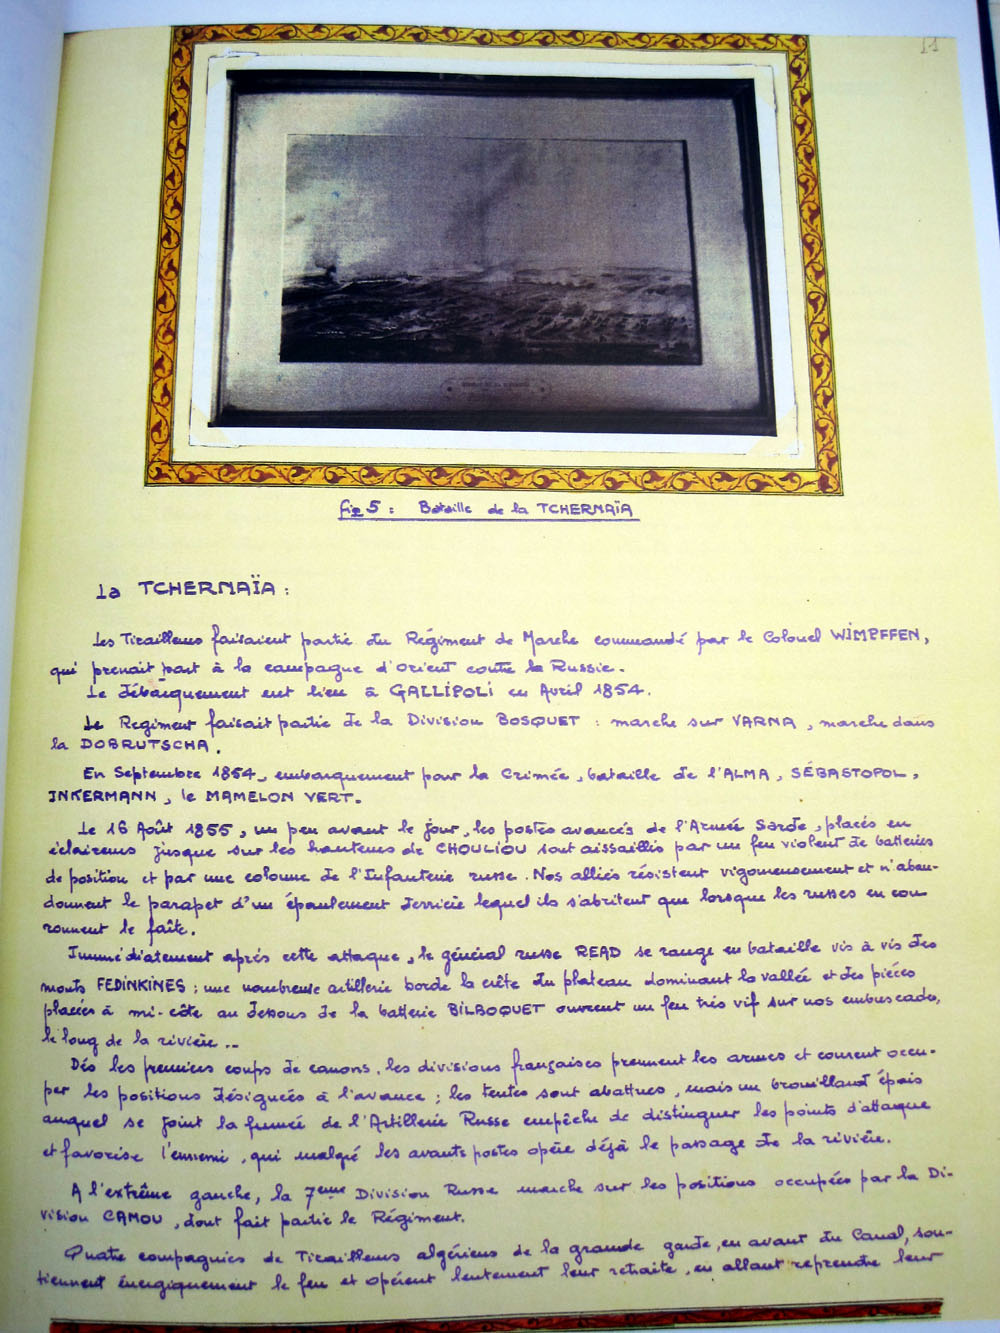 11
fig 5 : Bataille de la TCHERNAÏA
La TCHERNAÏA :
Les Tirailleurs faisaient partie du Régiment de Marche commandé par le Colonel WIMPFFEN,
qui prenait part à la campagne d'Orient contre la Russie.
Le débarquement eut lieu à GALLIPOLI en Avril 1854.
Le Regiment faisait partie de la Division BOSQUET : marche sur VARNA, marche dans
la DOBRUTSCHA.
En Septembre 1854, embarquement pour la Crimée, bataille de l'ALMA, SÉBASTOPOL,
INKERMANN, le MAMELON VERT.
Le 16 Août 1855, un peu avant le jour, les postes avancés de l'Armée Sarde, placés en
éclaireurs jusque sur les hauteurs de CHOULIOU sont aissaillis par un feu violent de batteries
de position et par une colonne de l'Infanterie russe. Nos alliés résistent vigoureusement et n'aban-
donnent le parapet d'un épaulement derrière lequel ils s'abritent que lorsque les russes en cou-
ronnent le faîte.
Immédiatement aprés cette attaque, le général russe READ se range en bataille vis à vis des
monts FEDINKINES ; une nombreuse artillerie borde la crête du plateau dominant la vallée et des pièces
placées à mi-côte au dessous de la batterie BILBOQUET ouvrent un feu trés vif sur nos embuscades,
le long de la rivière ..
Dés les premiers coups de canons, les divisions françaises prennent les armes et courent occu-
per les positions désignées à l'avance ; les tentes sont abattues, mais un brouillard épais
auquel se joint la fumée de l'Artillerie Russe empêche de distinguer les points d'attaque
et favorise l'ennemi, qui malgré les avants postes opère déjà le passage de la rivière.
A l'extrême gauche, la 7eme Division Russe marche sur les positions occupées par la Di-
vision CAMOU, dont fait partie le Régiment.
Quatre compagnies de Tirailleurs algériens de la grande garde, en avant du Canal, sou-
tiennent énergiquement le feu et opérent lentement leur retraite, en allant reprendre leur